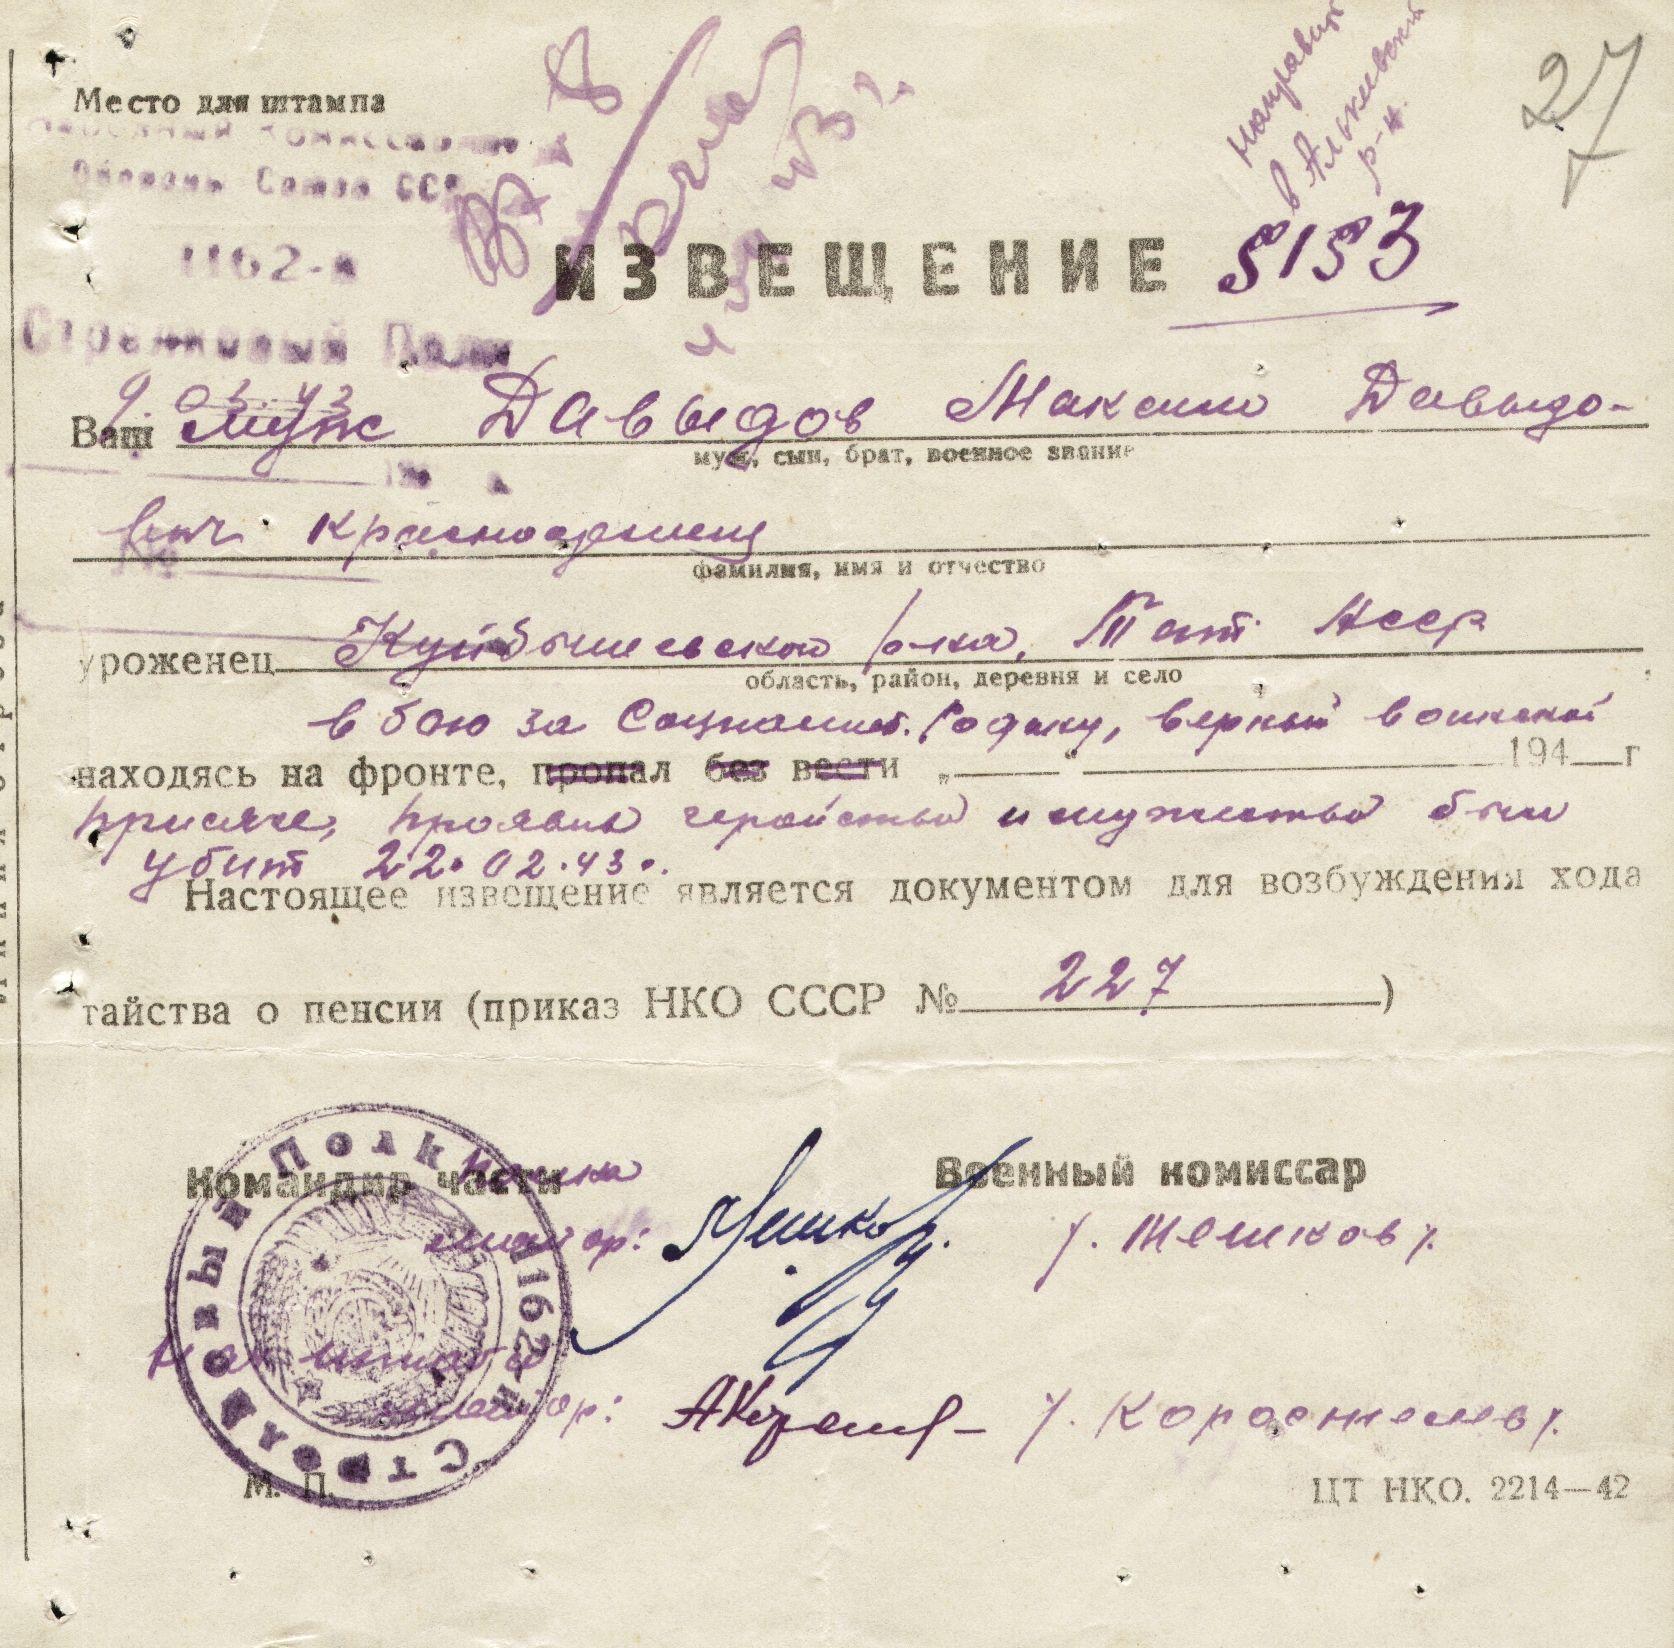 27
Направить
в Алькеевский
р-н.
Место для штампа
Народный Комиссариат
Обороны Союза ССР
1162-й
Стрелковый Полк
9. 03. 43
ИЗВЕЩЕНИЕ 5153
Ваш муж Давыдов Максим Давыдо-
муж, сын, брат, военное звание
вич красноармеец
фамилия, имя и отчество
уроженец Куйбышевского р-на, Тат. АССР
область, район, деревня и село
в бою за Социалист. Родину, верный воинской
находясь на фронте, пропал без вести „ “ 194 г
присяге, проявив геройство и мужество был
убит 22.02.43.
Настоящее извещение является документом для возбуждения хода
тайства о пенсии (приказ НКО СССР № 227)
Командир части полка Военный комиссар
майор: Мешков /. Мешков /.
Нач штаба
майор: /. Коростелев /.
1162й Стрелковый Полк
М. П.
ЦТ НКО. 2214—42